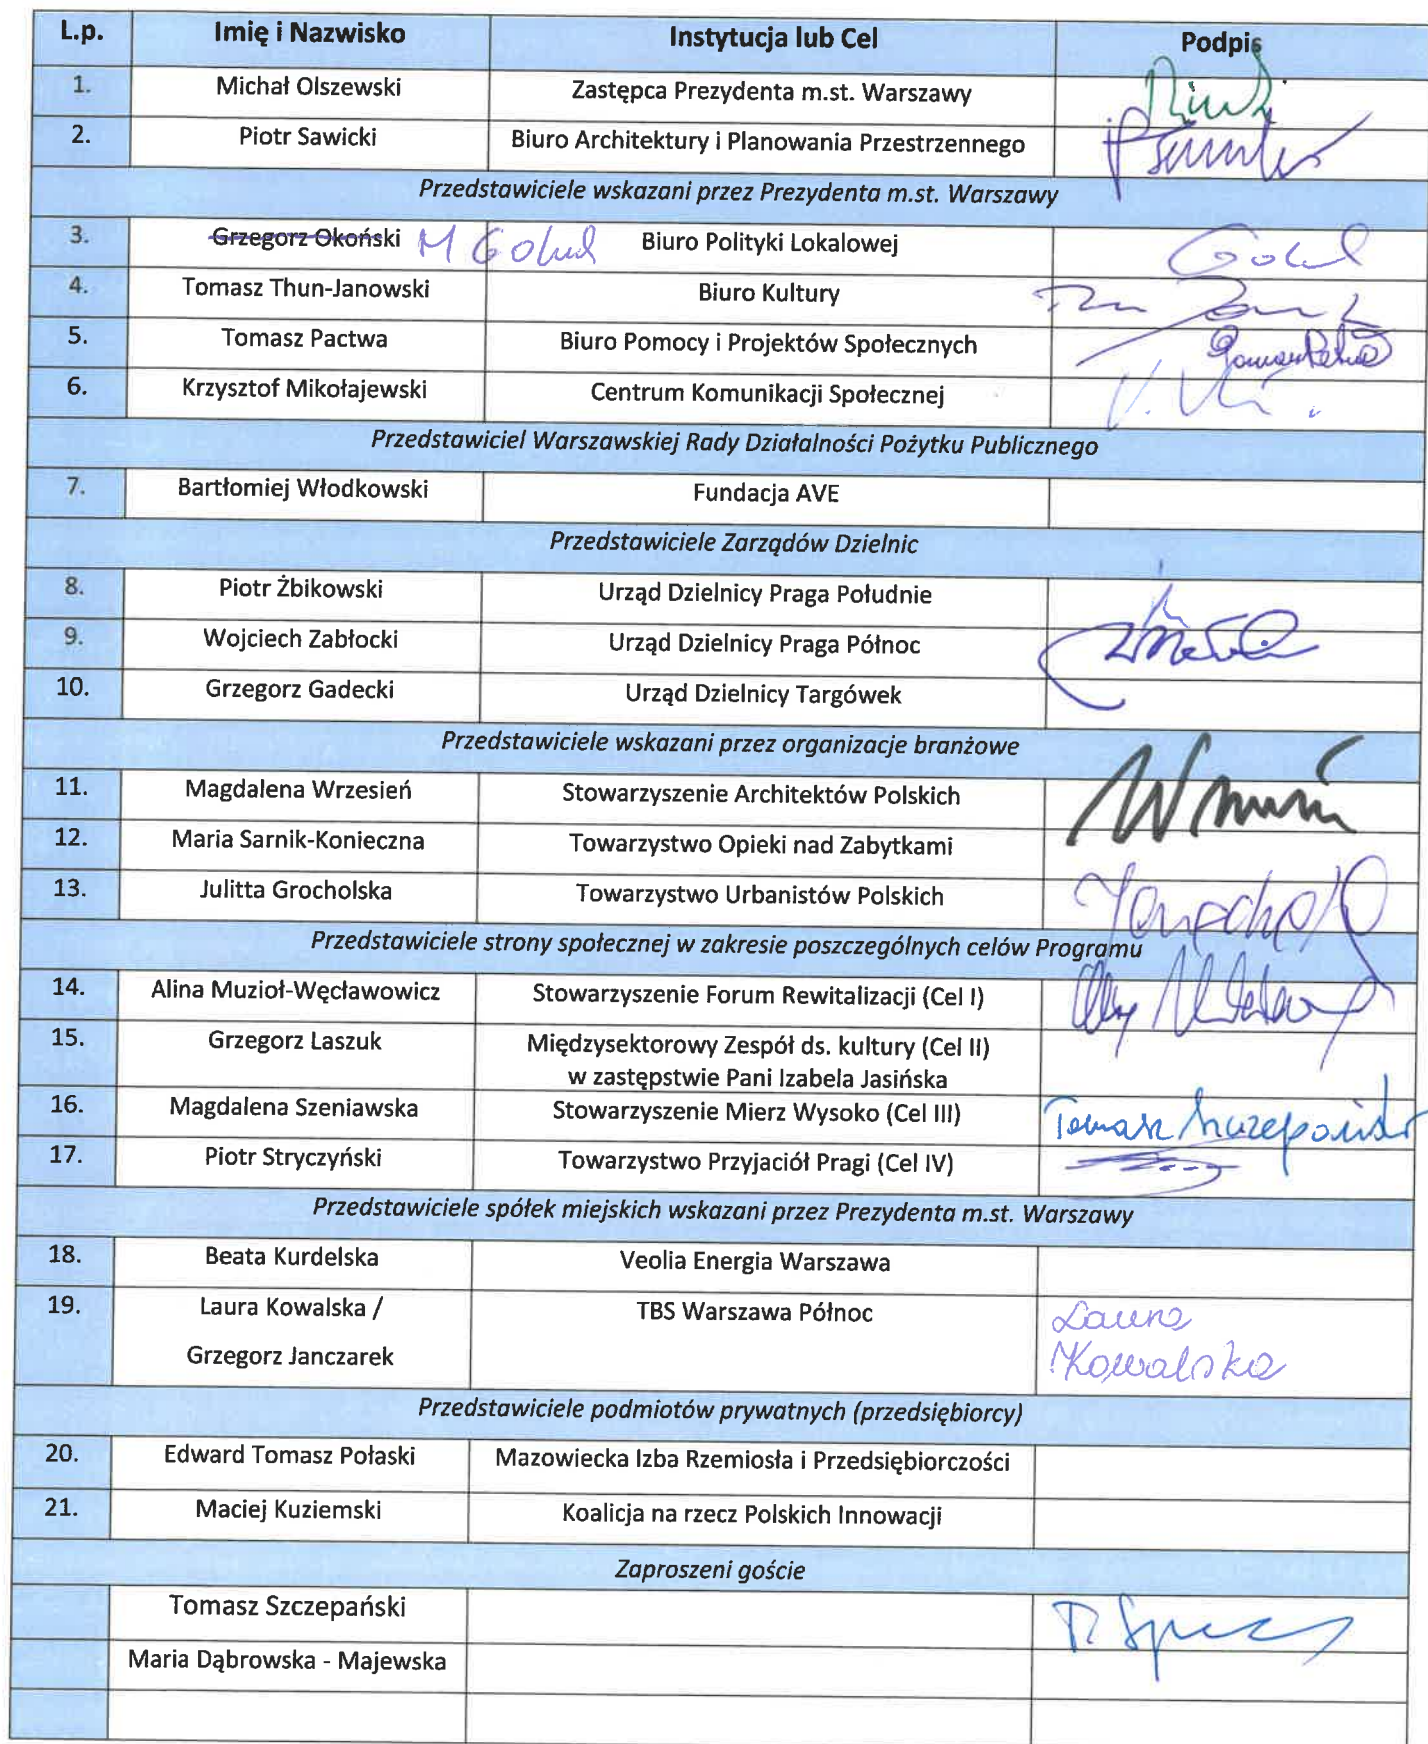 L.p. Imię i Nazwisko Instytucja lub Cel Podpis
1. Michał Olszewski Zastępca Prezydenta m.st. Warszawy
2. Piotr Sawicki Biuro Architektury i Planowania Przestrzennego
Przedstawiciele wskazani przez Prezydenta m.st. Warszawy
3. Grzegorz Okoński M Golud Biuro Polityki Lokalowej
4. Tomasz Thun-Janowski Biuro Kultury
5. Tomasz Pactwa Biuro Pomocy i Projektów Społecznych
6. Krzysztof Mikołajewski Centrum Komunikacji Społecznej
Przedstawiciel Warszawskiej Rady Działalności Pożytku Publicznego
7. Bartłomiej Włodkowski Fundacja AVE
Przedstawiciele Zarządów Dzielnic
8. Piotr Żbikowski Urząd Dzielnicy Praga Południe
9. Wojciech Zabłocki Urząd Dzielnicy Praga Północ
10. Grzegorz Gadecki Urząd Dzielnicy Targówek
Przedstawiciele wskazani przez organizacje branżowe
11. Magdalena Wrzesień Stowarzyszenie Architektów Polskich
12. Maria Sarnik-Konieczna Towarzystwo Opieki nad Zabytkami
13. Julitta Grocholska Towarzystwo Urbanistów Polskich
Przedstawiciele strony społecznej w zakresie poszczególnych celów Programu
14. Alina Muzioł-Węcławowicz Stowarzyszenie Forum Rewitalizacji (Cel I)
15. Grzegorz Laszuk Międzysektorowy Zespół ds. kultury (Cel II)
w zastępstwie Pani Izabela Jasińska
16. Magdalena Szeniawska Stowarzyszenie Mierz Wysoko (Cel III) Tomasz Szczepański
17. Piotr Stryczyński Towarzystwo Przyjaciół Pragi (Cel IV)
Przedstawiciele spółek miejskich wskazani przez Prezydenta m.st. Warszawy
18. Beata Kurdelska Veolia Energia Warszawa
19. Laura Kowalska / TBS Warszawa Północ Laura
Grzegorz Janczarek Kowalska
Przedstawiciele podmiotów prywatnych (przedsiębiorcy)
20. Edward Tomasz Połaski Mazowiecka Izba Rzemiosła i Przedsiębiorczości
21. Maciej Kuziemski Koalicja na rzecz Polskich Innowacji
Zaproszeni goście
Tomasz Szczepański
Maria Dąbrowska - Majewska